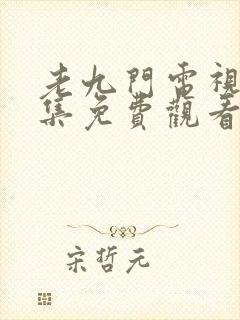 老九門電視
集免費觀看
宋哲元